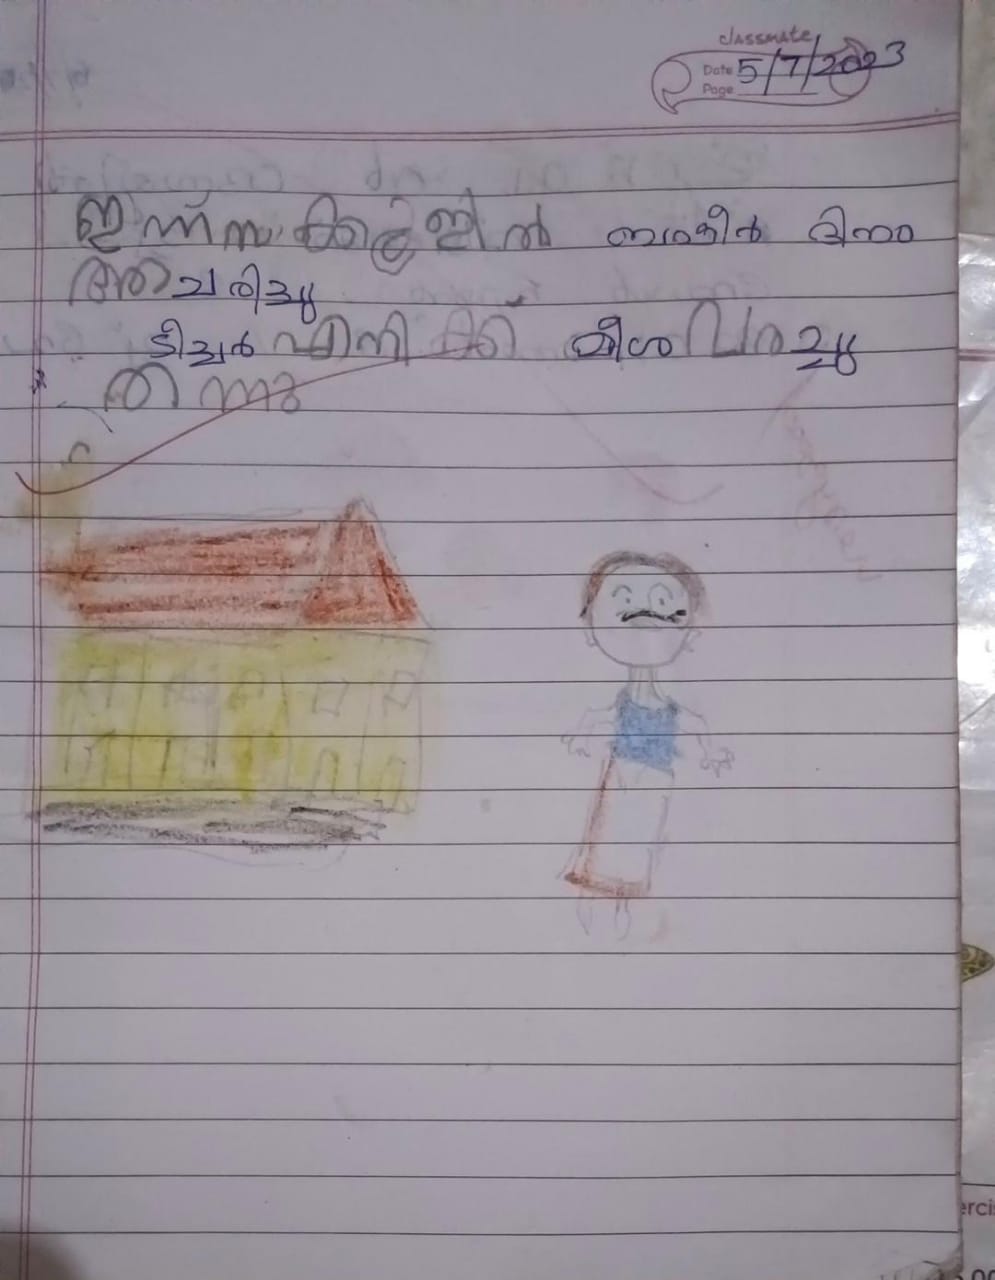 classmate
Date 5/7/2023
Page
ഇന്ന് സ്കൂളിൽ ബഷീർ ദിനം
ആചരിച്ചു
ടീച്ചർ എനിക്ക് മീശ വരച്ചു
തന്നു